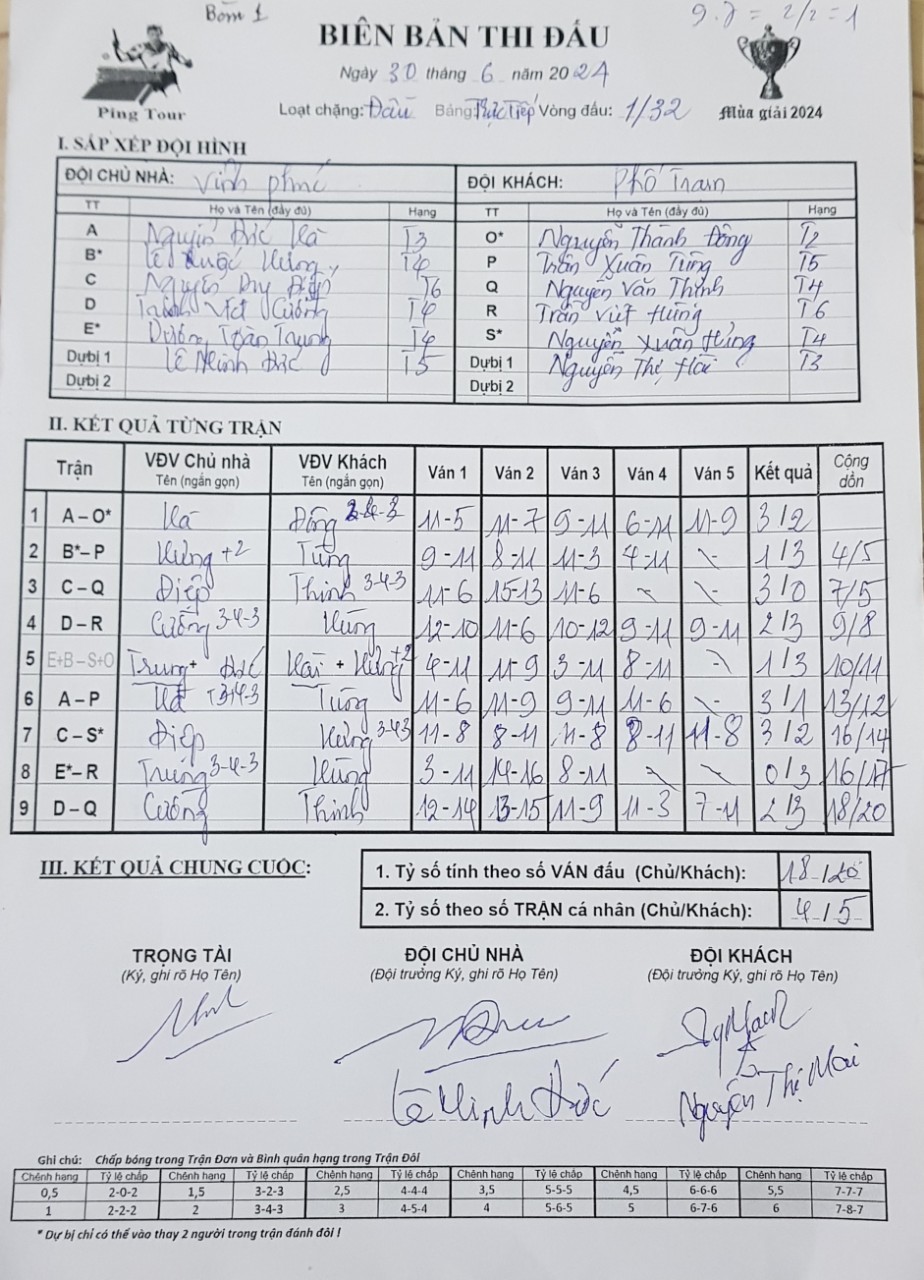 Bốm 1
9.7 = 2/2 = 1
BIÊN BẢN THI ĐẤU
Ngày 30 tháng 6 năm 2024
Ping Tour
Loạt chặng: Đầu Bảng Trực Tiếp Vòng đấu: 1/32
Mùa giải 2024
I. SẮP XẾP ĐỘI HÌNH
ĐỘI CHỦ NHÀ: Vĩnh phúc ĐỘI KHÁCH: Phố Tram
TT Họ và Tên (đầy đủ) Hạng TT Họ và Tên (đầy đủ) Hạng
A Nguyễn Đức Hà T3 O* Nguyễn Thành Đông T2
B* Lê Quốc Hưng T4 P Trần Xuân Tùng T5
C Nguyễn Duy Điệp T6 Q Nguyễn Văn Thịnh T4
D Trịnh Việt Cường T4 R Trần Việt Hùng T6
E* Dương Toàn Trung T4 S* Nguyễn Xuân Hưng T4
Dự bị 1 Lê Minh Đức T5 Dự bị 1 Nguyễn Thị Hải T3
Dự bị 2 Dự bị 2
II. KẾT QUẢ TỪNG TRẬN
Trận VĐV Chủ nhà Tên (ngắn gọn) VĐV Khách Tên (ngắn gọn) Ván 1 Ván 2 Ván 3 Ván 4 Ván 5 Kết quả Cộng dồn
1 A – O* Hà Đông 3-4-3 11-5 11-7 9-11 6-11 11-9 3/2
2 B*– P Hưng +2 Tùng 9-11 8-11 11-3 4-11 \ 1/3 4/5
3 C – Q Điệp Thịnh 3-4-3 11-6 15-13 11-6 \ \ 3/0 7/5
4 D – R Cường 3-4-3 Hùng 12-10 11-6 10-12 9-11 9-11 2/3 9/8
5 E+B – S+O Trung + Đức Hải + Hưng +2 4-11 11-9 3-11 8-11 \ 1/3 10/11
6 A – P Hà +3-4-3 Tùng 11-6 11-9 9-11 11-6 \ 3/1 13/12
7 C – S* Điệp Hưng 3-4-3 11-8 8-11 11-8 8-11 11-8 3/2 16/14
8 E*– R Trung 3-4-3 Hùng 3-11 14-16 8-11 \ \ 0/3 16/17
9 D – Q Cường Thịnh 12-14 13-15 11-9 11-3 7-11 2/3 18/20
III. KẾT QUẢ CHUNG CUỘC:
1. Tỷ số tính theo số VÁN đấu (Chủ/Khách): 18/20
2. Tỷ số theo số TRẬN cá nhân (Chủ/Khách): 4/5
TRỌNG TÀI ĐỘI CHỦ NHÀ ĐỘI KHÁCH
(Ký, ghi rõ Họ Tên) (Đội trưởng Ký, ghi rõ Họ Tên) (Đội trưởng Ký, ghi rõ Họ Tên)
Lê Minh Đức
Nguyễn Thị Mai
Ghi chú: Chấp bóng trong Trận Đơn và Bình quân hạng trong Trận Đôi
Chênh hạng Tỷ lệ chấp Chênh hạng Tỷ lệ chấp Chênh hạng Tỷ lệ chấp Chênh hạng Tỷ lệ chấp Chênh hạng Tỷ lệ chấp Chênh hạng Tỷ lệ chấp
0,5 2-0-2 1,5 3-2-3 2,5 4-4-4 3,5 5-5-5 4,5 6-6-6 5,5 7-7-7
1 2-2-2 2 3-4-3 3 4-5-4 4 5-6-5 5 6-7-6 6 7-8-7
* Dự bị chỉ có thể vào thay 2 người trong trận đánh đôi !